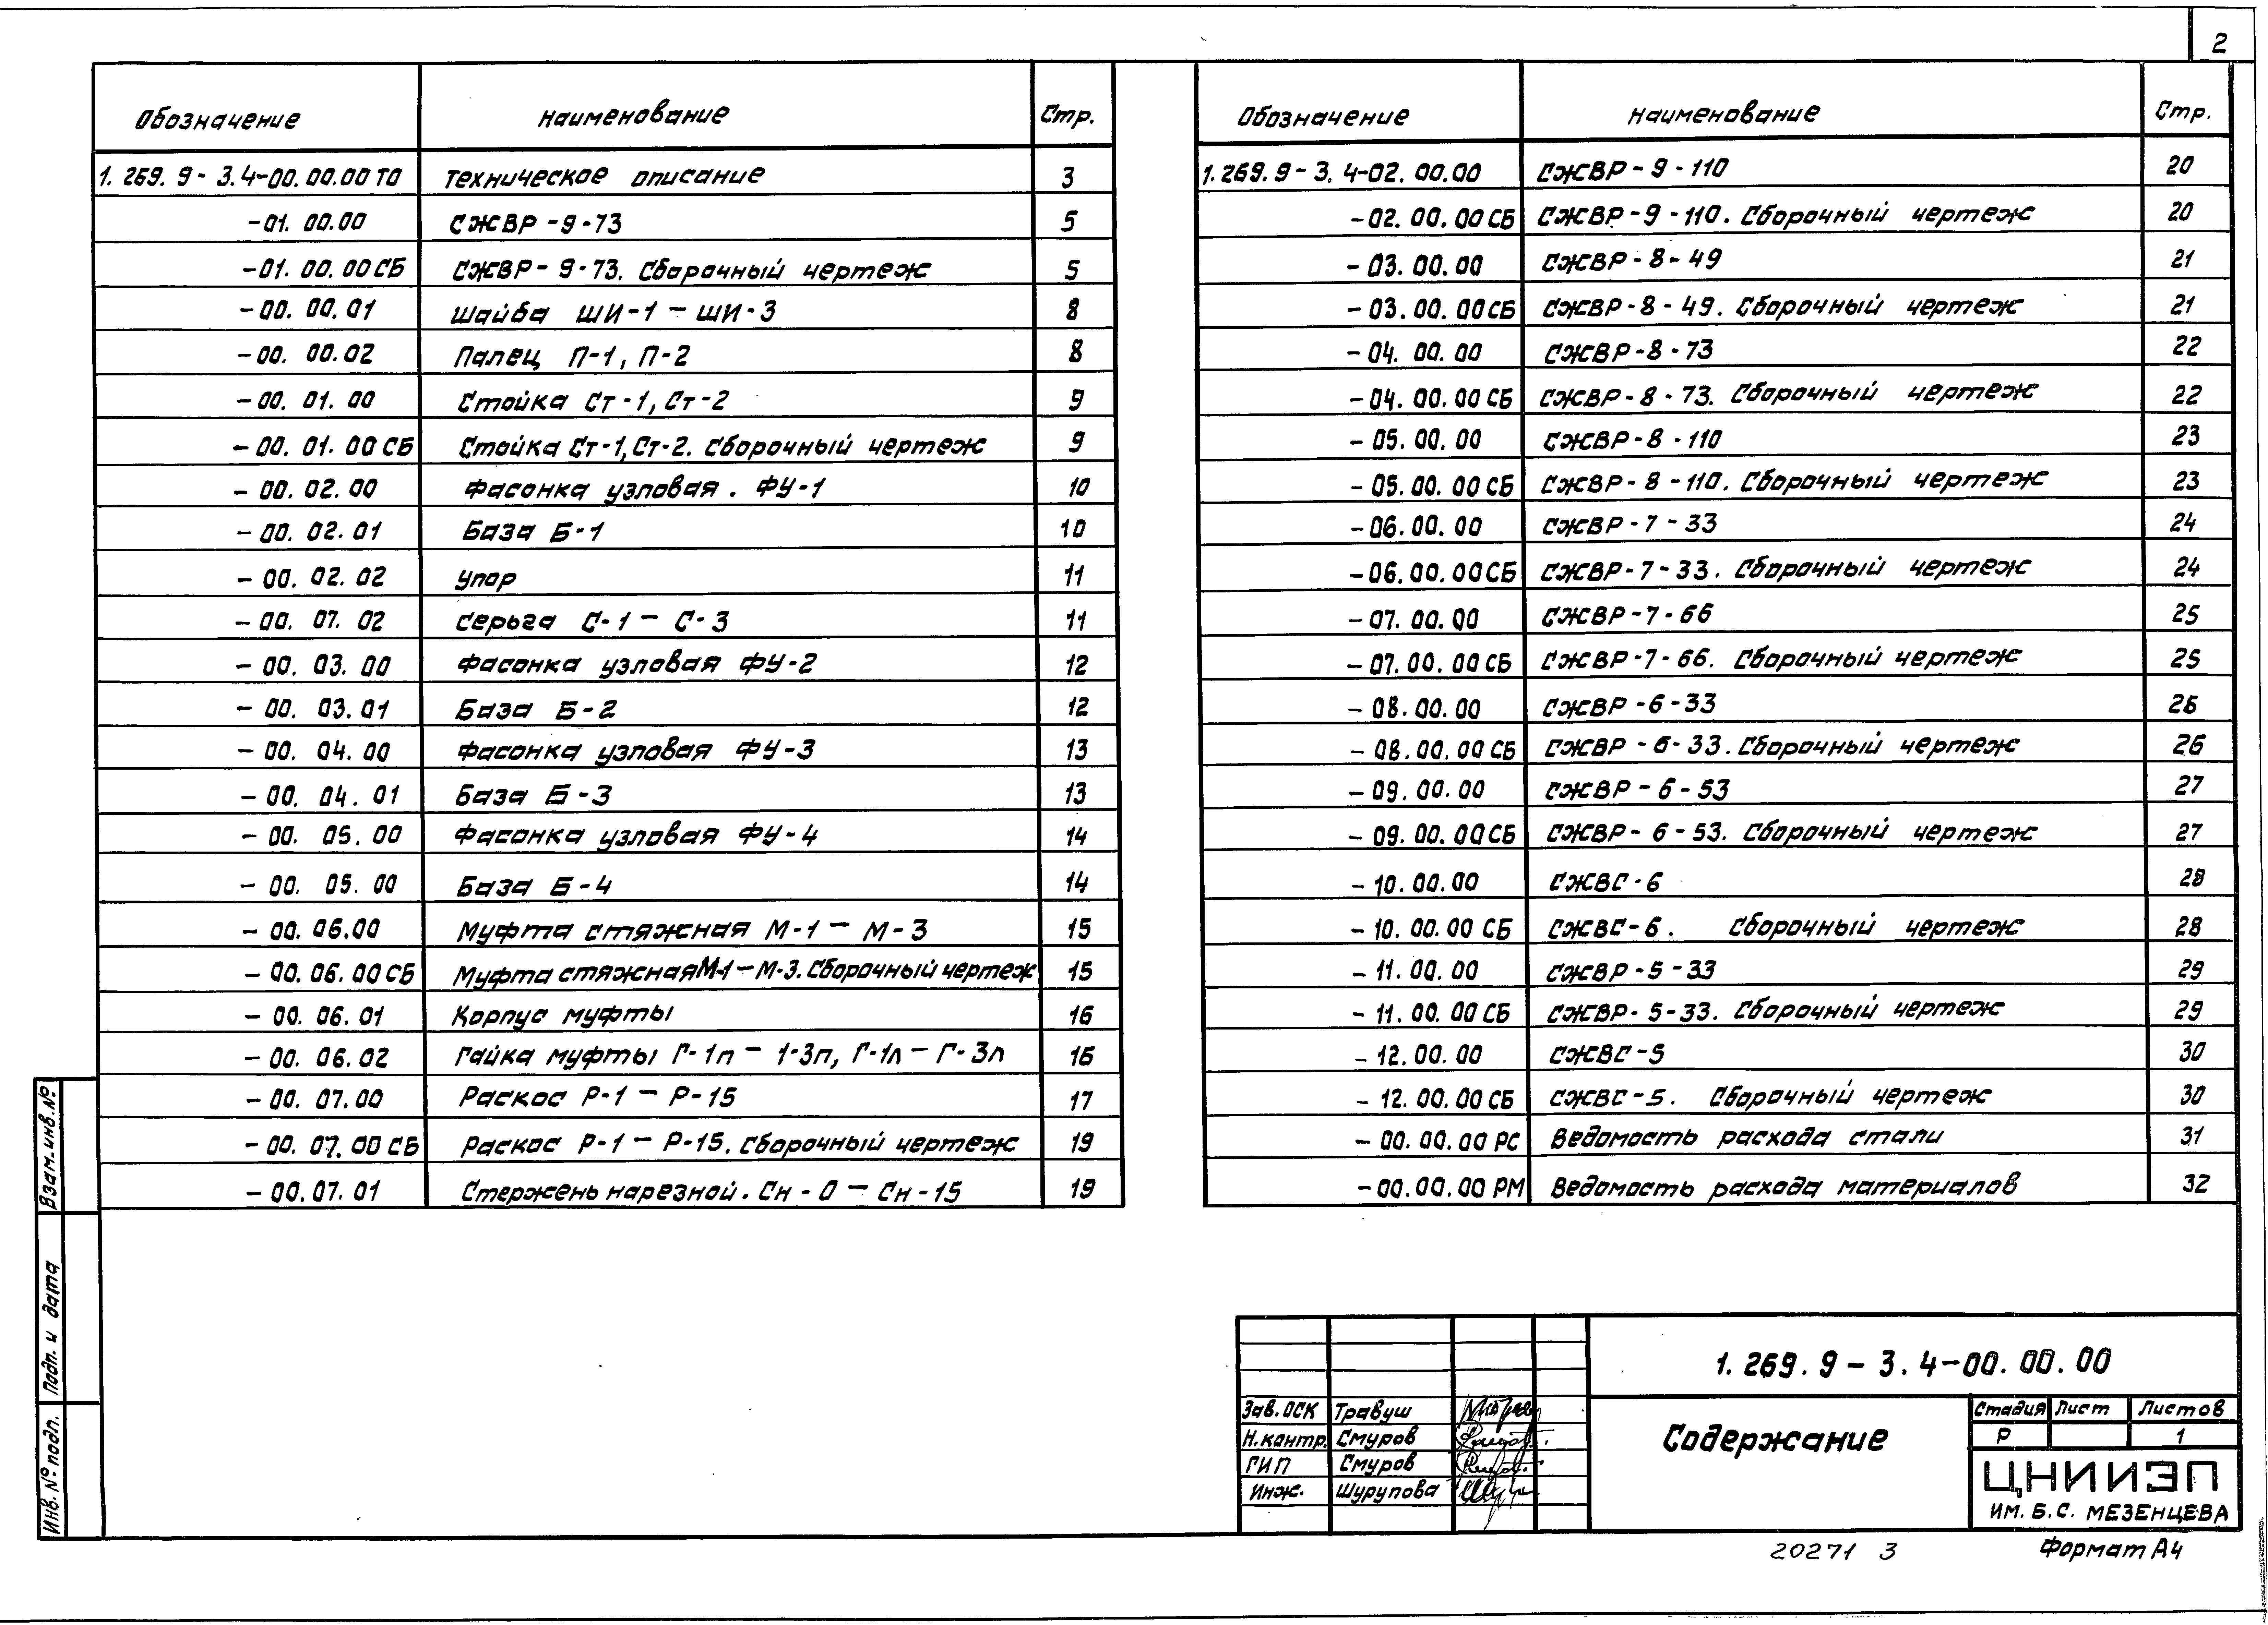 2
Обозначение Наименование Стр.
1.269.9-3.4-00.00.00 ТО Техническое описание 3
-01.00.00 СЖВР-9-73 5
-01.00.00 СБ СЖВР-9-73. Сборочный чертеж 5
-00.00.01 Шайба ШИ-1 — ШИ-3 8
-00.00.02 Палец П-1, П-2 8
-00.01.00 Стойка Ст-1, Ст-2 9
-00.01.00 СБ Стойка Ст-1, Ст-2. Сборочный чертеж 9
-00.02.00 Фасонка узловая. ФУ-1 10
-00.02.01 База Б-1 10
-00.02.02 Упор 11
-00.07.02 Серьга С-1 — С-3 11
-00.03.00 Фасонка узловая ФУ-2 12
-00.03.01 База Б-2 12
-00.04.00 Фасонка узловая ФУ-3 13
-00.04.01 База Б-3 13
-00.05.00 Фасонка узловая ФУ-4 14
-00.05.00 База Б-4 14
-00.06.00 Муфта стяжная М-1 — М-3 15
-00.06.00 СБ Муфта стяжная М-1 — М-3. Сборочный чертеж 15
-00.06.01 Корпус муфты 16
-00.06.02 Гайка муфты Г-1п — 1-3п, Г-1л — Г-3л 16
-00.07.00 Раскос Р-1 — Р-15 17
-00.07.00 СБ Раскос Р-1 — Р-15. Сборочный чертеж 19
-00.07.01 Стержень нарезной. Сн-0 — Сн-15 19
Обозначение Наименование Стр.
1.269.9-3.4-02.00.00 СЖВР-9-110 20
-02.00.00 СБ СЖВР-9-110. Сборочный чертеж 20
-03.00.00 СЖВР-8-49 21
-03.00.00 СБ СЖВР-8-49. Сборочный чертеж 21
-04.00.00 СЖВР-8-73 22
-04.00.00 СБ СЖВР-8-73. Сборочный чертеж 22
-05.00.00 СЖВР-8-110 23
-05.00.00 СБ СЖВР-8-110. Сборочный чертеж 23
-06.00.00 СЖВР-7-33 24
-06.00.00 СБ СЖВР-7-33. Сборочный чертеж 24
-07.00.00 СЖВР-7-66 25
-07.00.00 СБ СЖВР-7-66. Сборочный чертеж 25
-08.00.00 СЖВР-6-33 26
-08.00.00 СБ СЖВР-6-33. Сборочный чертеж 26
-09.00.00 СЖВР-6-53 27
-09.00.00 СБ СЖВР-6-53. Сборочный чертеж 27
-10.00.00 СЖВС-6 28
-10.00.00 СБ СЖВС-6. Сборочный чертеж 28
-11.00.00 СЖВР-5-33 29
-11.00.00 СБ СЖВР-5-33. Сборочный чертеж 29
-12.00.00 СЖВС-5 30
-12.00.00 СБ СЖВС-5. Сборочный чертеж 30
-00.00.00 РС Ведомость расхода стали 31
-00.00.00 РМ Ведомость расхода материалов 32
Взам.инв.№
Подп. и дата
Инв.№ подл.
1.269.9-3.4-00.00.00
Зав.ОСК Травуш
Н.контр. Смуров
ГИП Смуров
Инж. Шурупова
Содержание
Стадия Лист Листов
Р 1
ЦНИИЭП
ИМ. Б.С. МЕЗЕНЦЕВА
20271 3 Формат А4